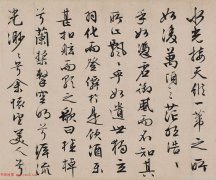 水光接天縱一葦之所
如凌萬頃之茫然浩浩
乎如馮虛御風而不知其
所止飄飄乎如遺世獨立
羽化而登僊於是飲酒樂
甚扣舷而歌之歌曰桂棹
兮蘭槳擊空明兮泝流
光渺渺兮余懷望美人兮